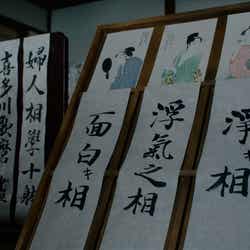 浮氣之相
面白キ相
婦人相學十躰
喜多川歌麿